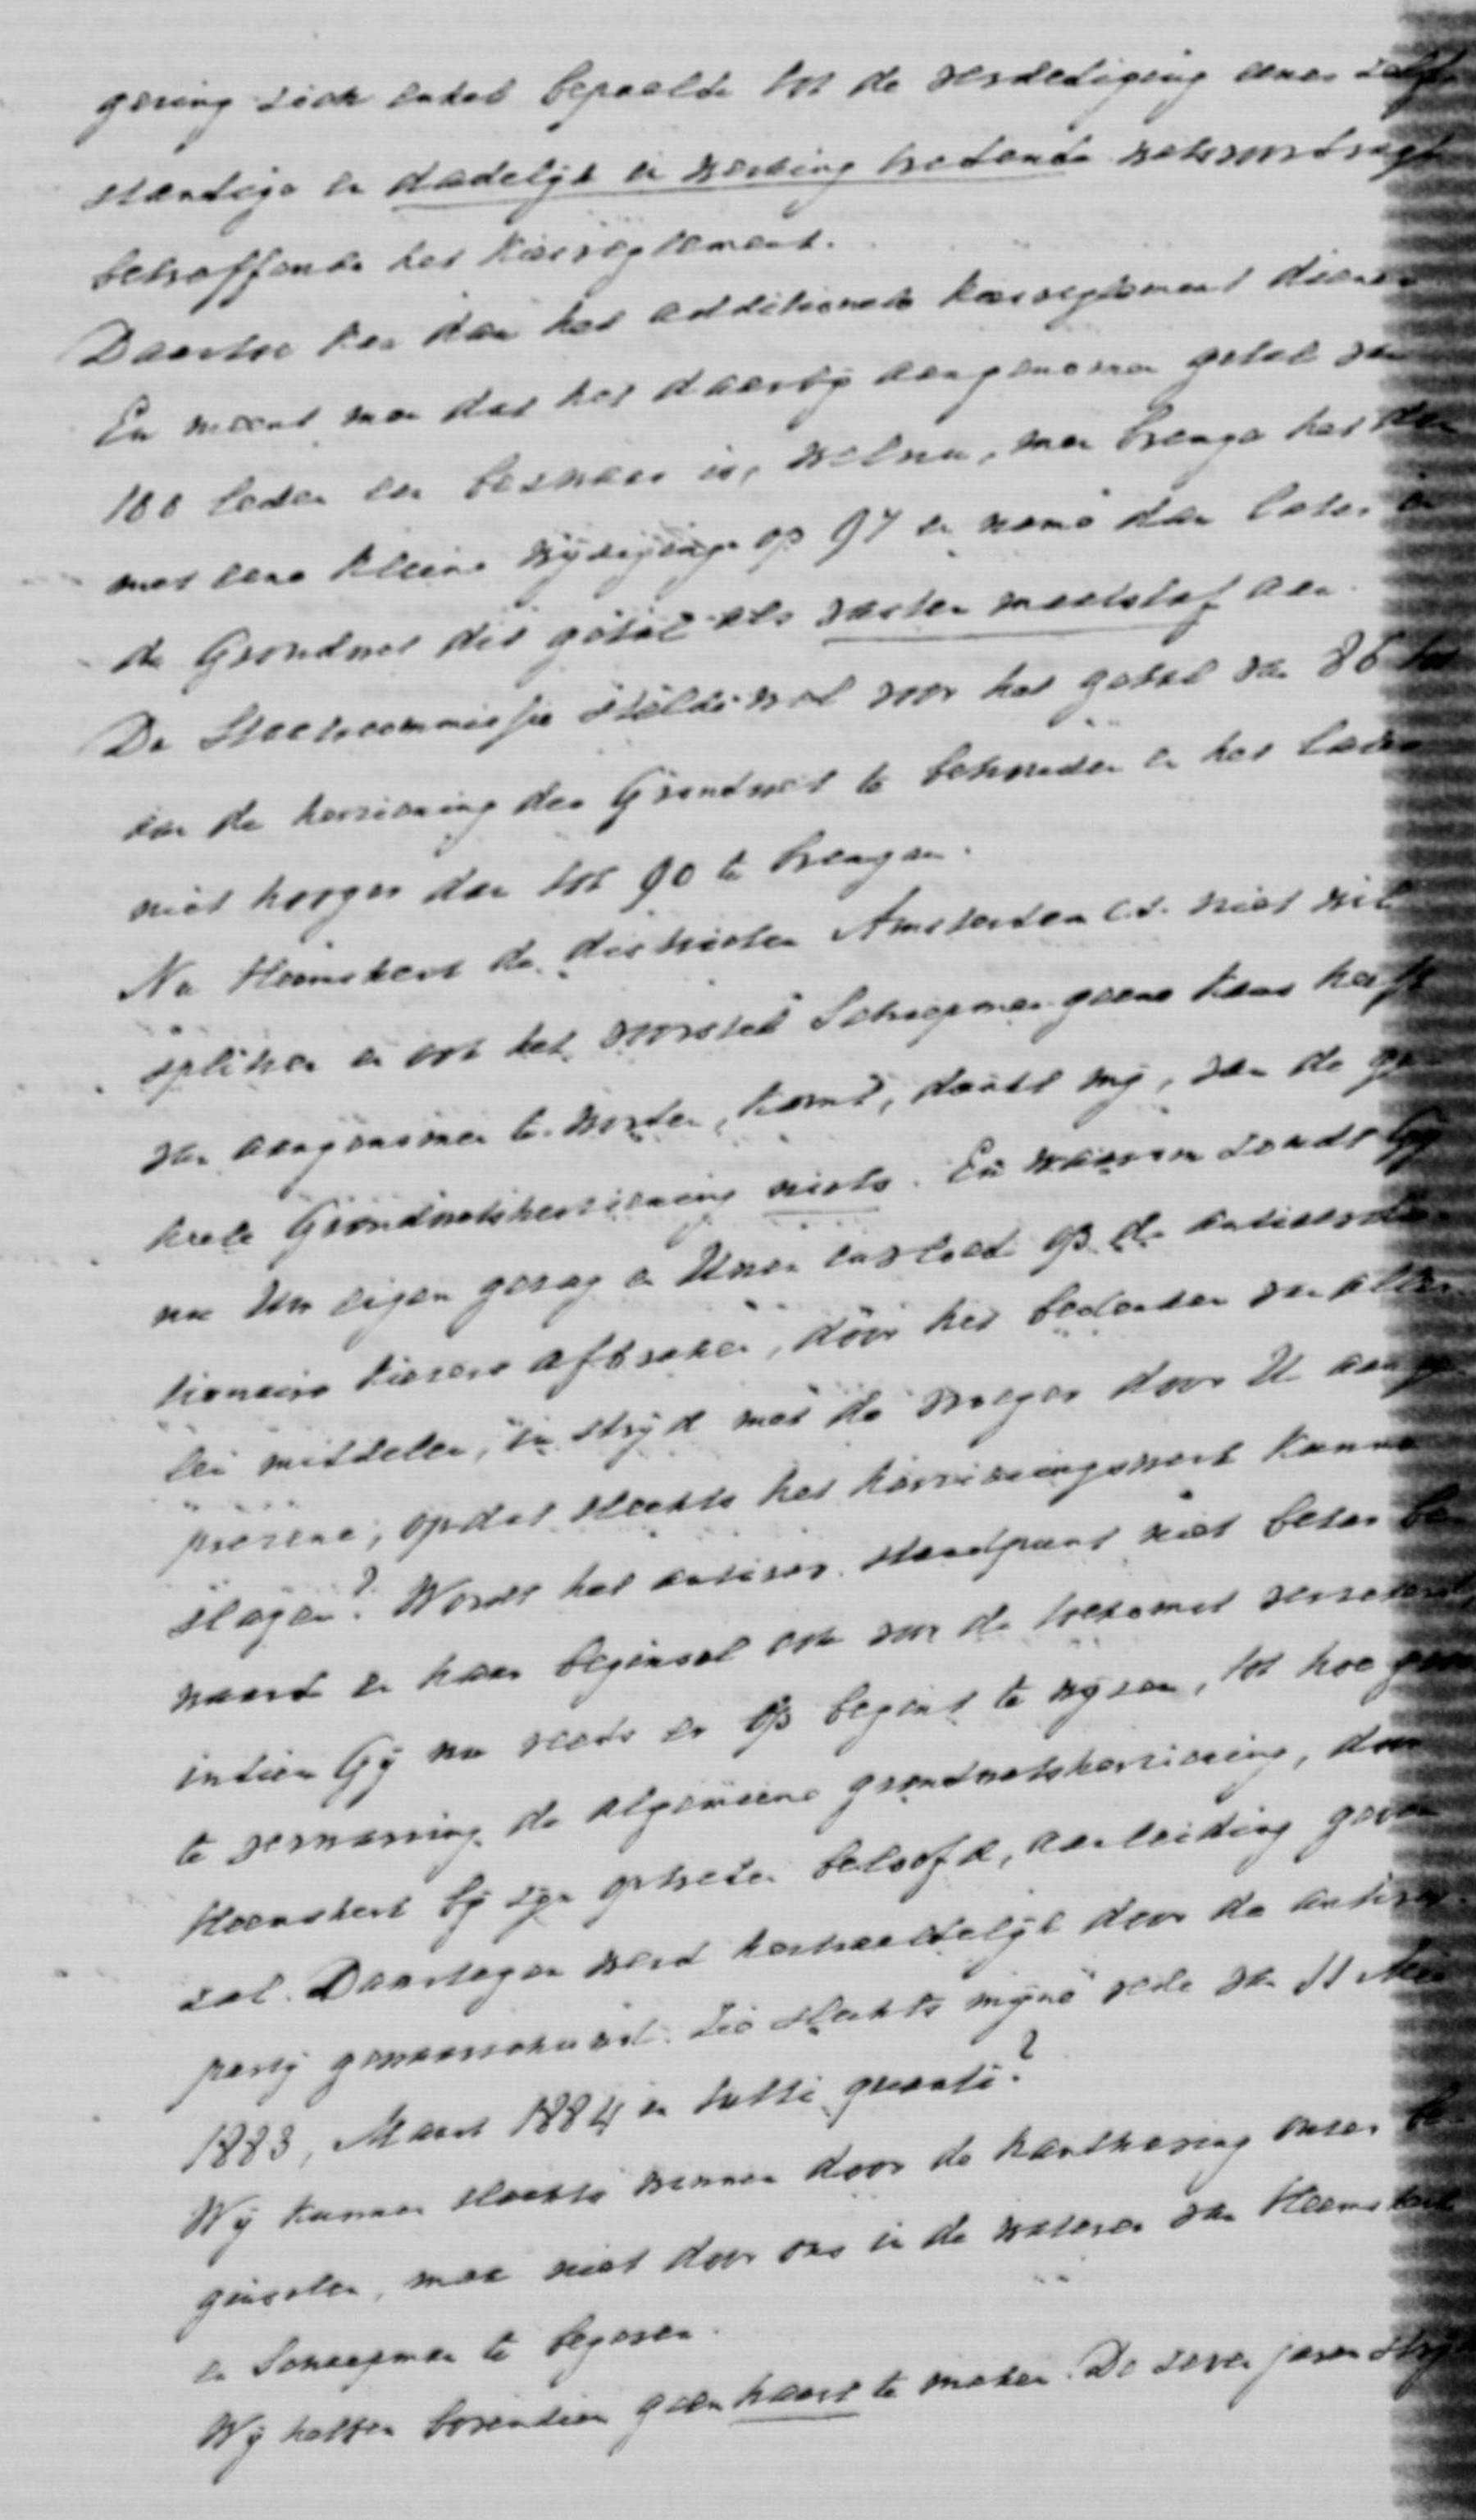 gering zich enkel bepaalde tot de verdediging eener zelf-
standige en dadelijk in werking tredende wetsvoordragt
betreffende het kiesreglement.
Daartoe kan dan het additioneele kiesreglement dienen
En meent men dat het daarbij aangenomen getal van
100 leden een bezwaar is, welnu, men brenge het dan
met eene kleine wijziging op 97 en neme dan later in
de Grondwet dit getal als vasten maatstaf aan.
De Staatscommissie stelde wel voor het getal van 86 tot
aan de herziening der Grondwet te behouden en het later
niet hooger dan tot 90 te brengen.
Nu Heemskerk de districten Amsterdam c.s. niet wil
splitsen en ook het voorstel Schaepman geene kans heeft
van aangenomen te worden, komt, dunkt mij, van de ge-
heele Grondwetsherziening niets. En waarom zoudt Gij
nu Uw eigen gezag en Uwen invloed op de antirevolu-
tionaire kiezers afbreken, door het bedenken van aller-
lei middelen, in strijd met de vroeger door U aange-
prezene, opdat slechts het herzieningswerk kunne
slagen? Wordt het antirev. standpunt niet beter be-
waard en haar beginsel ook voor de toekomst verzekerd,
indien Gij nu reeds er op begint te wijzen, tot hoe groo-
te verwarring de algemeene grondwetsherziening, door
Heemskerk bij zijn optreden beloofd, aanleiding geven
zal. Daartegen werd herhaaldelijk door de antirev.
partij gewaarschuwd. Zie slechts mijne rede van 11 Mei
1883, Maart 1884 en tutti quanti?
Wij kunnen slechts winnen door de handhaving onzer be-
ginselen, maar niet door ons in de wateren van Heemskerk
en Schaepman te begeven.
Wij hebben bovendien geen haast te maken. De zeven jaren